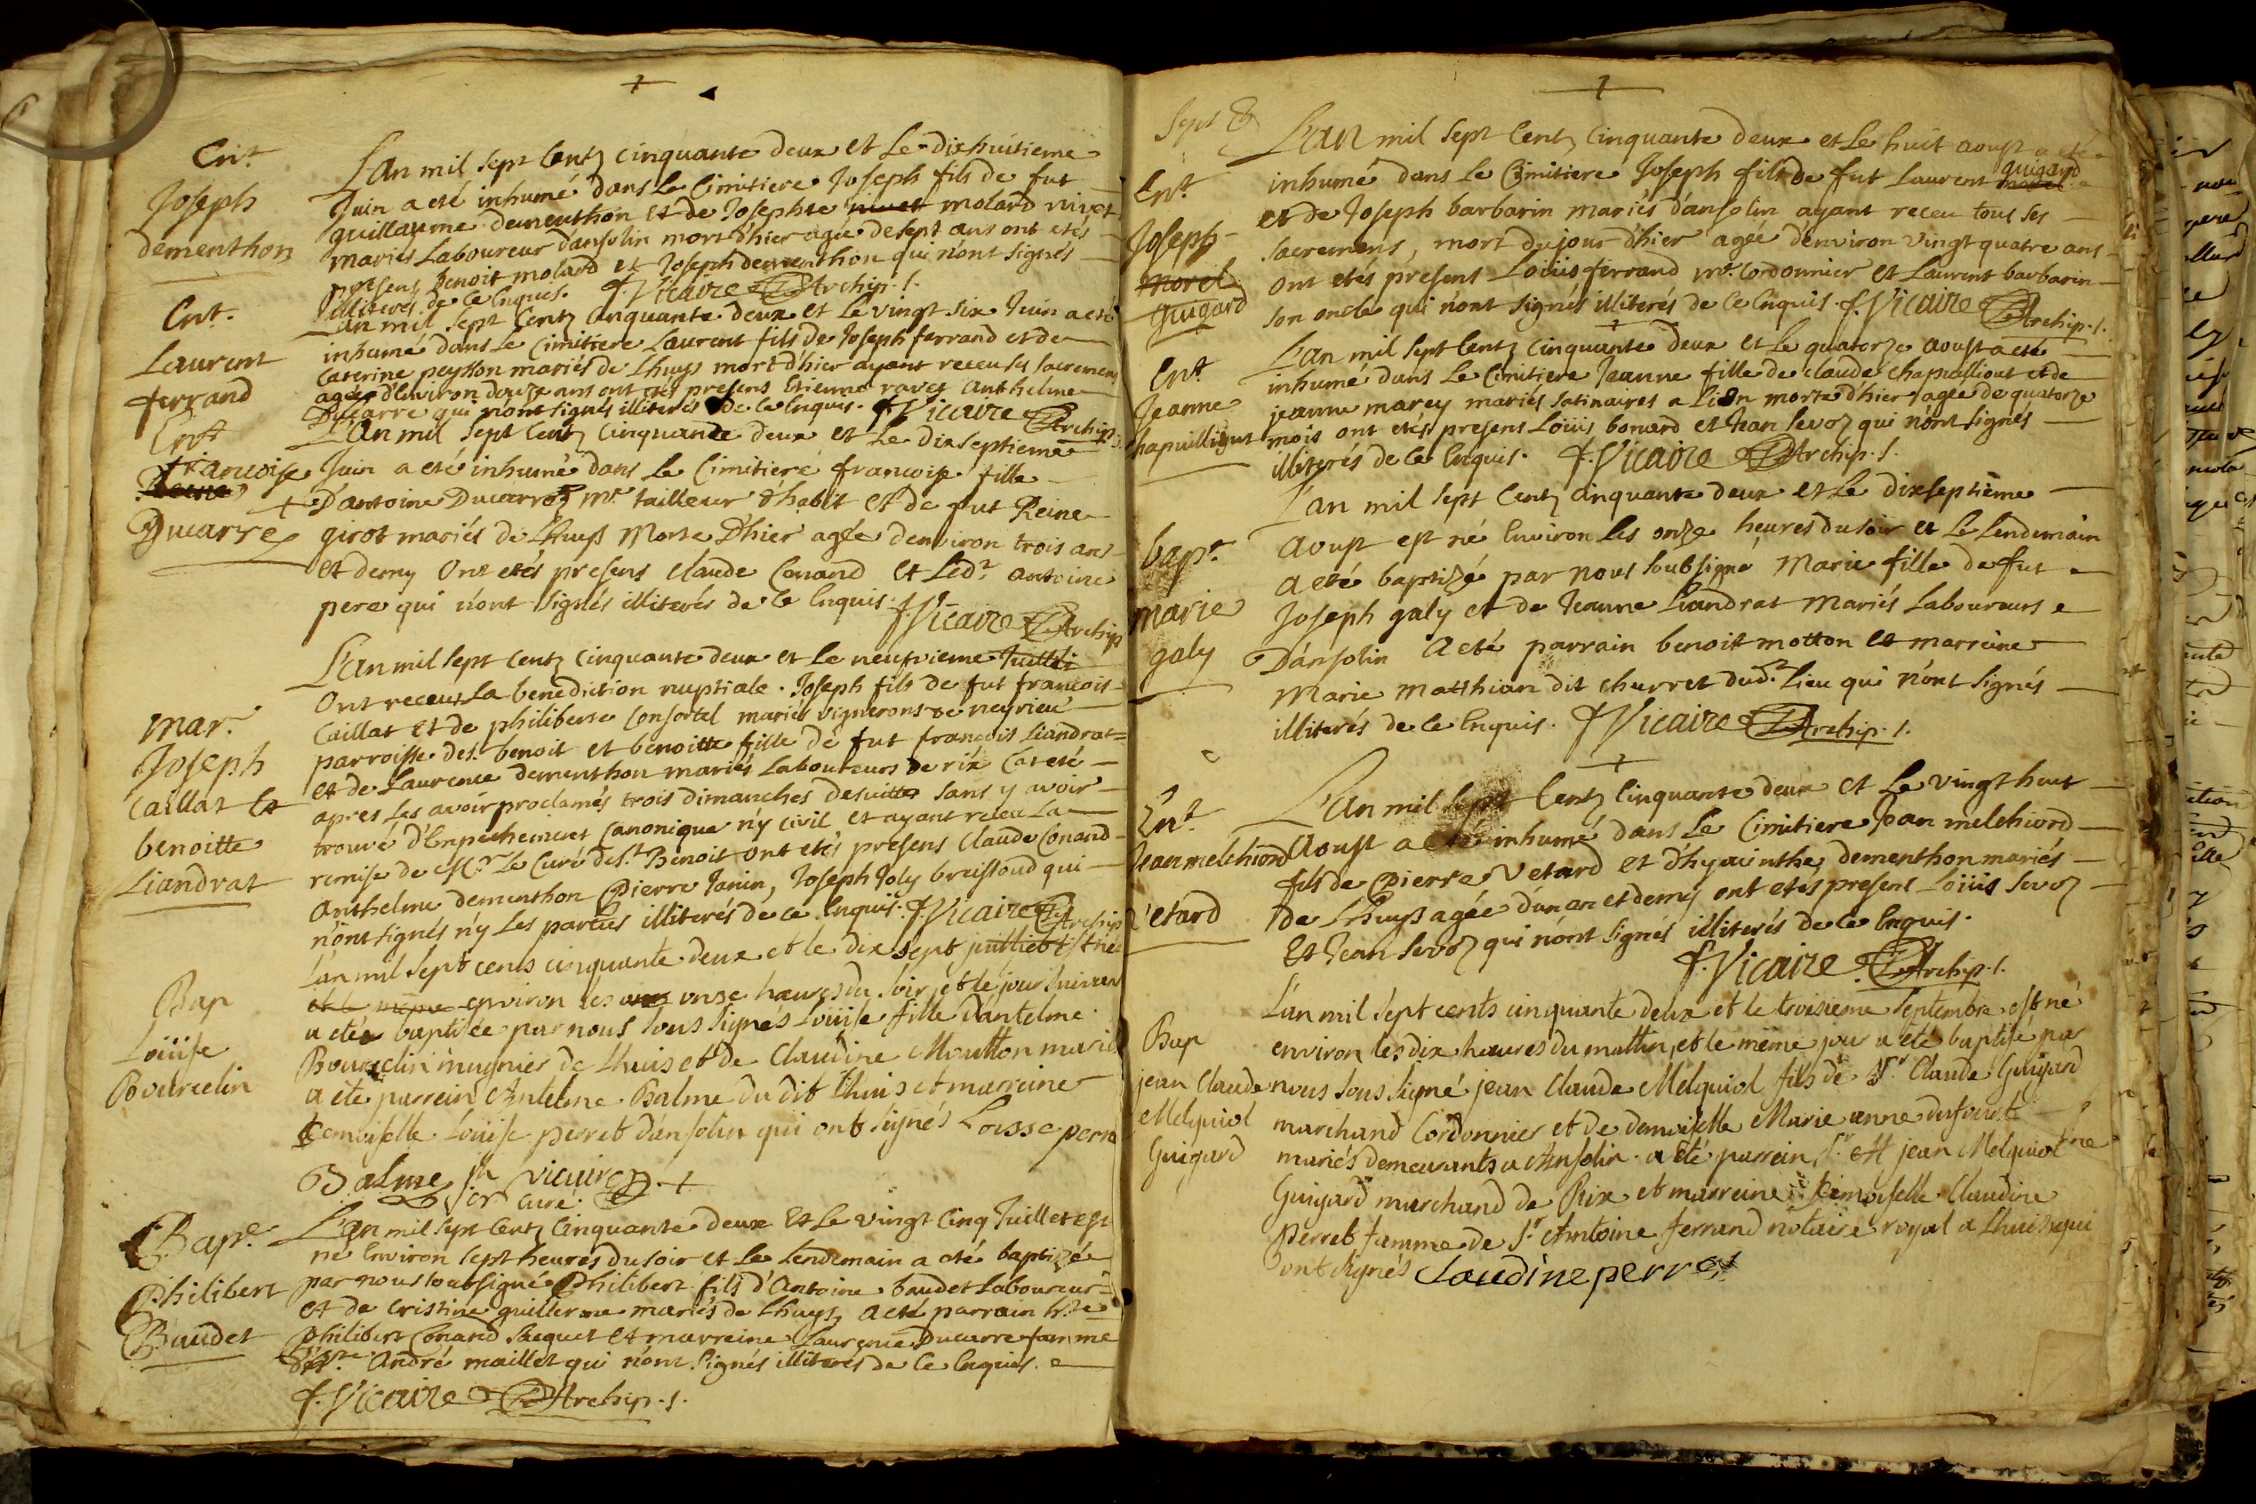 Ent.
Joseph
dementhon
L'an mil sept Centz cinquante deux et Le dixhuitieme
Juin a eté inhumé dans Le Cimitiere Joseph fils de fut
guillaume dementhon et de Josephte molard nivet
mariés Laboureur d'ansolin mort d'hier agée de sept ans ont etés
presens benoit molard et Joseph dementhon qui n'ont signés
illiterés de Ce Enquis. f. Vicaire Archip. s.
Ent.
Laurent
ferrand
L'an mil sept Centz cinquante deux et Le vingt six Juin a eté
inhumé dans Le Cimitiere Laurent fils de Joseph ferrand et de
Caterine peysson mariés de Lhuys mort d'hier ayant receu ses sacremens
agée d'Environ douze ans ont etés presens Etienne ravet anthelme
Ducarre qui n'ont signés illiterés de Ce Enquis. f. Vicaire Archip. s.
Ent
francoise
Reine
Ducarre
L'an mil sept Centz Cinquante deux et Le dixseptieme
Juin a eté inhumé dans Le Cimitiere francoise fille
D'antoine Ducarroz mr. tailleur d'habit et de fut Reine
girot mariés de Lhuys Morte D'hier agée denviron trois ans
et demy Ont etés presens Claude Conand et Led. antoine
pere qui n'ont signés illiterés de Ce Enquis. f. Vicaire Archip
Mar.
Joseph
Caillat et
benoitte
Liandrat
L'an mil sept Centz Cinquante deux et Le neufvieme Juillet
Ont receus La benediction nuptiale. Joseph fils de fut francois
Caillat et de philiberte Consortel mariés vignerons de neyrieu
parroisse de s. benoit et benoitte fille de fut francois Liandrat
et de Laurence dementhon mariés Laboureurs de rix Cat eté
apres Les avoir proclamés trois dimanches desuittes sans y avoir
trouvé d'Enpechement Canonique n'y civil et ayant receu La
remise de Mr. Le Curé de St. Benoit ont etés presens Claude Conand
Anthelme dementhon Pierre Janin, Joseph Joly breissoud qui
n'ont signés n'y Les parties illiterés de ce Enquis. f. Vicaire Archip
Bap
Loüise
Bourcelin
L'an mil sept cents cinquante deux et le dix sept juilliet est née
et le même environ les onse heures du soir, et le jour suivan
a eté baptisée par nous sous signés Loüise fille d'antelme
Bourcelin mugnier de Lhuis et de Claudine Moutton mariés
a ete parrein Antelme Balme du dit Lhuis et marreine
demoiselle Loüise perret dansolin qui ont signés Loisse perre
Balme f. vicaire
sr curé
Bap.e
Philibert
Baudet
L'an mil sept Centz Cinquante deux Et Le vingt Cinq Juillet est
né Environ sept heures du soir et Le Lendemain a eté baptizée
par nous soubsigné Philibert fils d'Antoine baudet Laboureur
et de Cristine guillerme mariés de Lhuys, a eté parrain h.te
Philibert Conand Jacquet et marreine Laurence Ducarre femme
d'h.te André maillet qui n'ont signés illiterés de Ce Enquis.
f. Vicaire Archip. s.
Sept
Ent
Joseph
morel
guigard
L'an mil sept Centz Cinquante deux et Le huit aoust a eté
inhumé dans Le Cimitiere Joseph fils de fut Laurent morel guigard
et de Joseph barbarin mariés d'ansolin ayant receu tous ses
sacremens, mort du jour d'hier agée d'environ vingt quatre ans
ont etés presens Loüis ferrand mr. Cordonnier et Laurent barbarin
son oncle qui n'ont signés illiterés de Ce Enquis. f. Vicaire Archip. s.
Ent
Jeanne
Chapuilliout
L'an mil sept Centz Cinquante deux et Le quatorze aoust a eté
inhumé dans Le Cimitiere Jeanne fille de claude Chapuilliout et de
jeanne marey mariés satinaires a Lion morte d'hier agée de quatorze
mois ont etés presens Loüis bonard et Jean Sevoz qui n'ont signés
illiterés de Ce Enquis. f. Vicaire Archip. s.
bap.e
marie
galy
L'an mil sept Centz Cinquante deux et Le dixseptieme
aoust est né Environ Les onze heures du soir et Le Lendemain
a eté baptizé par nous soubsigné Marie fille de fut
Joseph galy et de Jeanne Liandrat Mariés Laboureurs
D'ansolin a eté parrain benoit motton et marreine
Marie matthian dit churret dud. Lieu qui n'ont signés
illiterés de Ce Enquis. f. Vicaire Archip. s.
Ent
Jean melchiord
Vetard
L'an mil sept Centz Cinquante deux et Le vingt huit
Aoust a eté inhumé dans Le Cimitiere Jean melchiord
fils de Pierre Vetard et d'hyacinthe dementhon mariés
de Lhuys agée d'un an et demy ont etés presens Loüis Sevoz
Et Jean Sevoz qui n'ont signés illiterés de Ce Enquis.
f. Vicaire Archip. s.
Bap
jean Claude
Melquiol
Guigard
L'an mil sept cents cinquante deux et le troisieme septembre est né
environ les dix heures du mattin, et le même jour a eté baptisé par
nous sous signé jean Claude Melquiol fils de Sr Claude Guigard
marchand Cordonnier et de demoiselle Marie anne dufourt
mariés demeurants a Ansolin a été parrein, Sr jean Melquiol
Guigard marchand de Rix et marreine demoiselle Claudine
perret famme de Sr Antoine ferrand notaire royal a Lhuis qui
ont signés Claudine perret